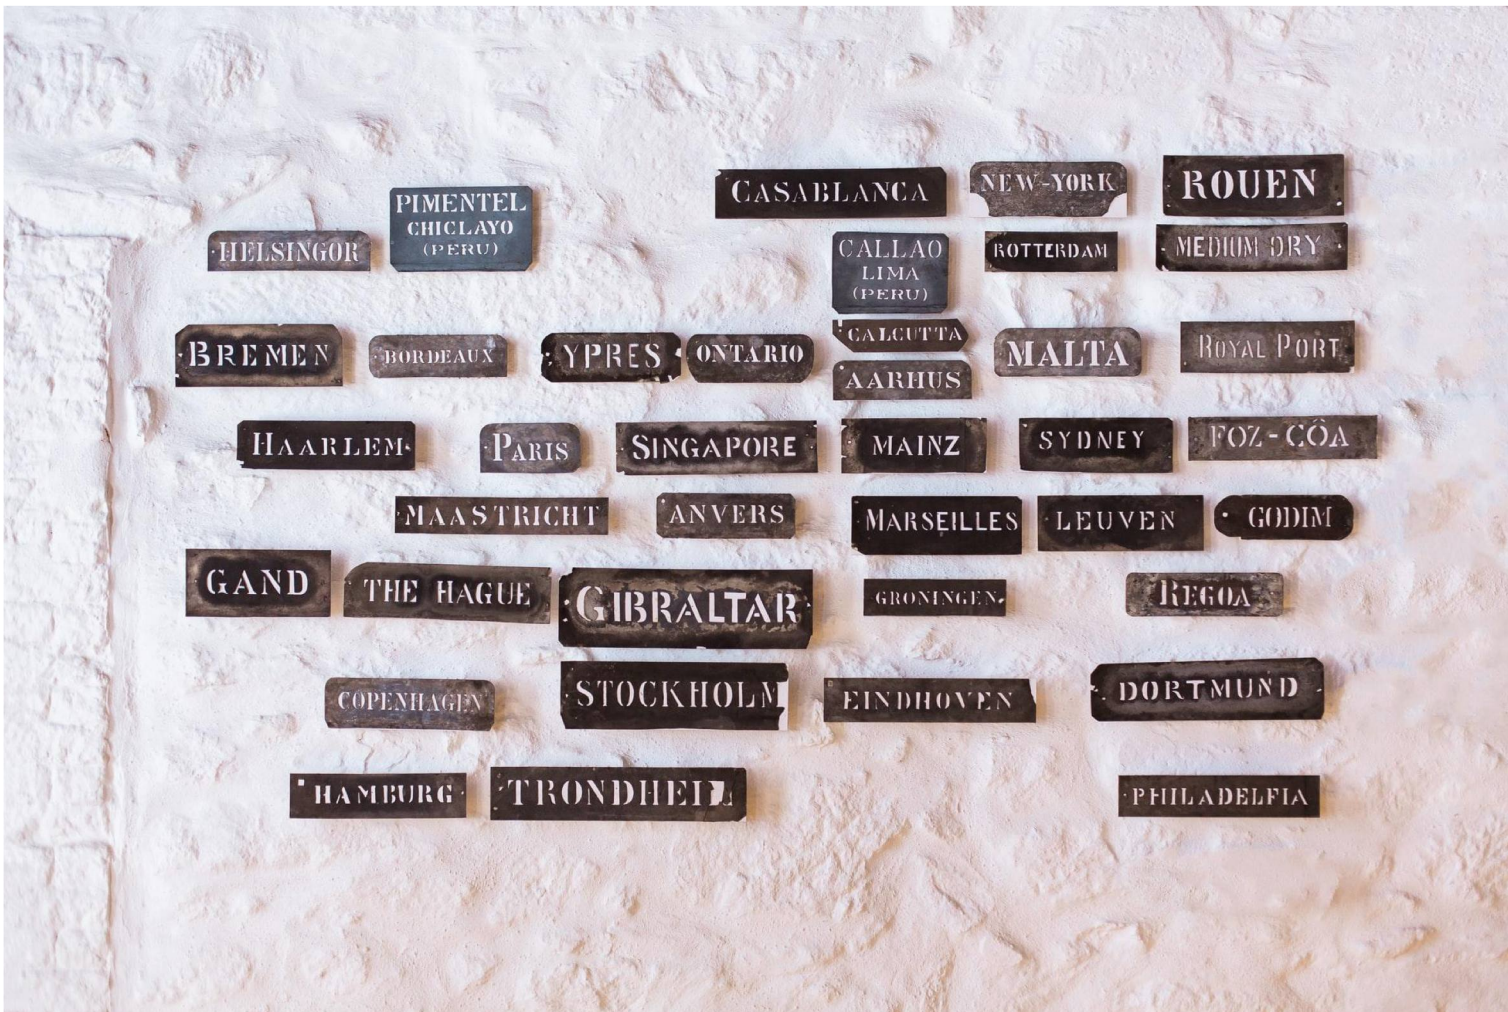 CASABLANCA
NEW-YORK
ROUEN
PIMENTEL
CHICLAYO
(PERU)
HELSINGOR
CALLAO
LIMA
(PERU)
ROTTERDAM
MEDIUM DRY
BREMEN
BORDEAUX
YPRES
ONTARIO
CALCUTTA
AARHUS
MALTA
ROYAL PORT
HAARLEM
PARIS
SINGAPORE
MAINZ
SYDNEY
FOZ-CÔA
MAASTRICHT
ANVERS
MARSEILLES
LEUVEN
GODIM
GAND
THE HAGUE
GIBRALTAR
GRONINGEN
REGOA
COPENHAGEN
STOCKHOLM
EINDHOVEN
DORTMUND
HAMBURG
TRONDHEIM
PHILADELFIA